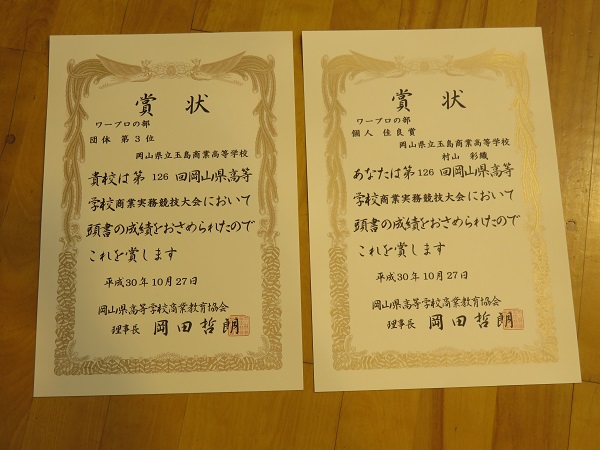 賞状
ワープロの部
団体 第3位
岡山県立玉島商業高等学校
貴校は第126回岡山県高等
学校商業実務競技大会において
頭書の成績をおさめられたので
これを賞します
平成30年10月27日
岡山県高等学校商業教育協会
理事長 岡田哲朗
賞状
ワープロの部
個人 佳良賞
岡山県立玉島商業高等学校
村山 彩織
あなたは第126回岡山県高等
学校商業実務競技大会において
頭書の成績をおさめられたので
これを賞します
平成30年10月27日
岡山県高等学校商業教育協会
理事長 岡田哲朗